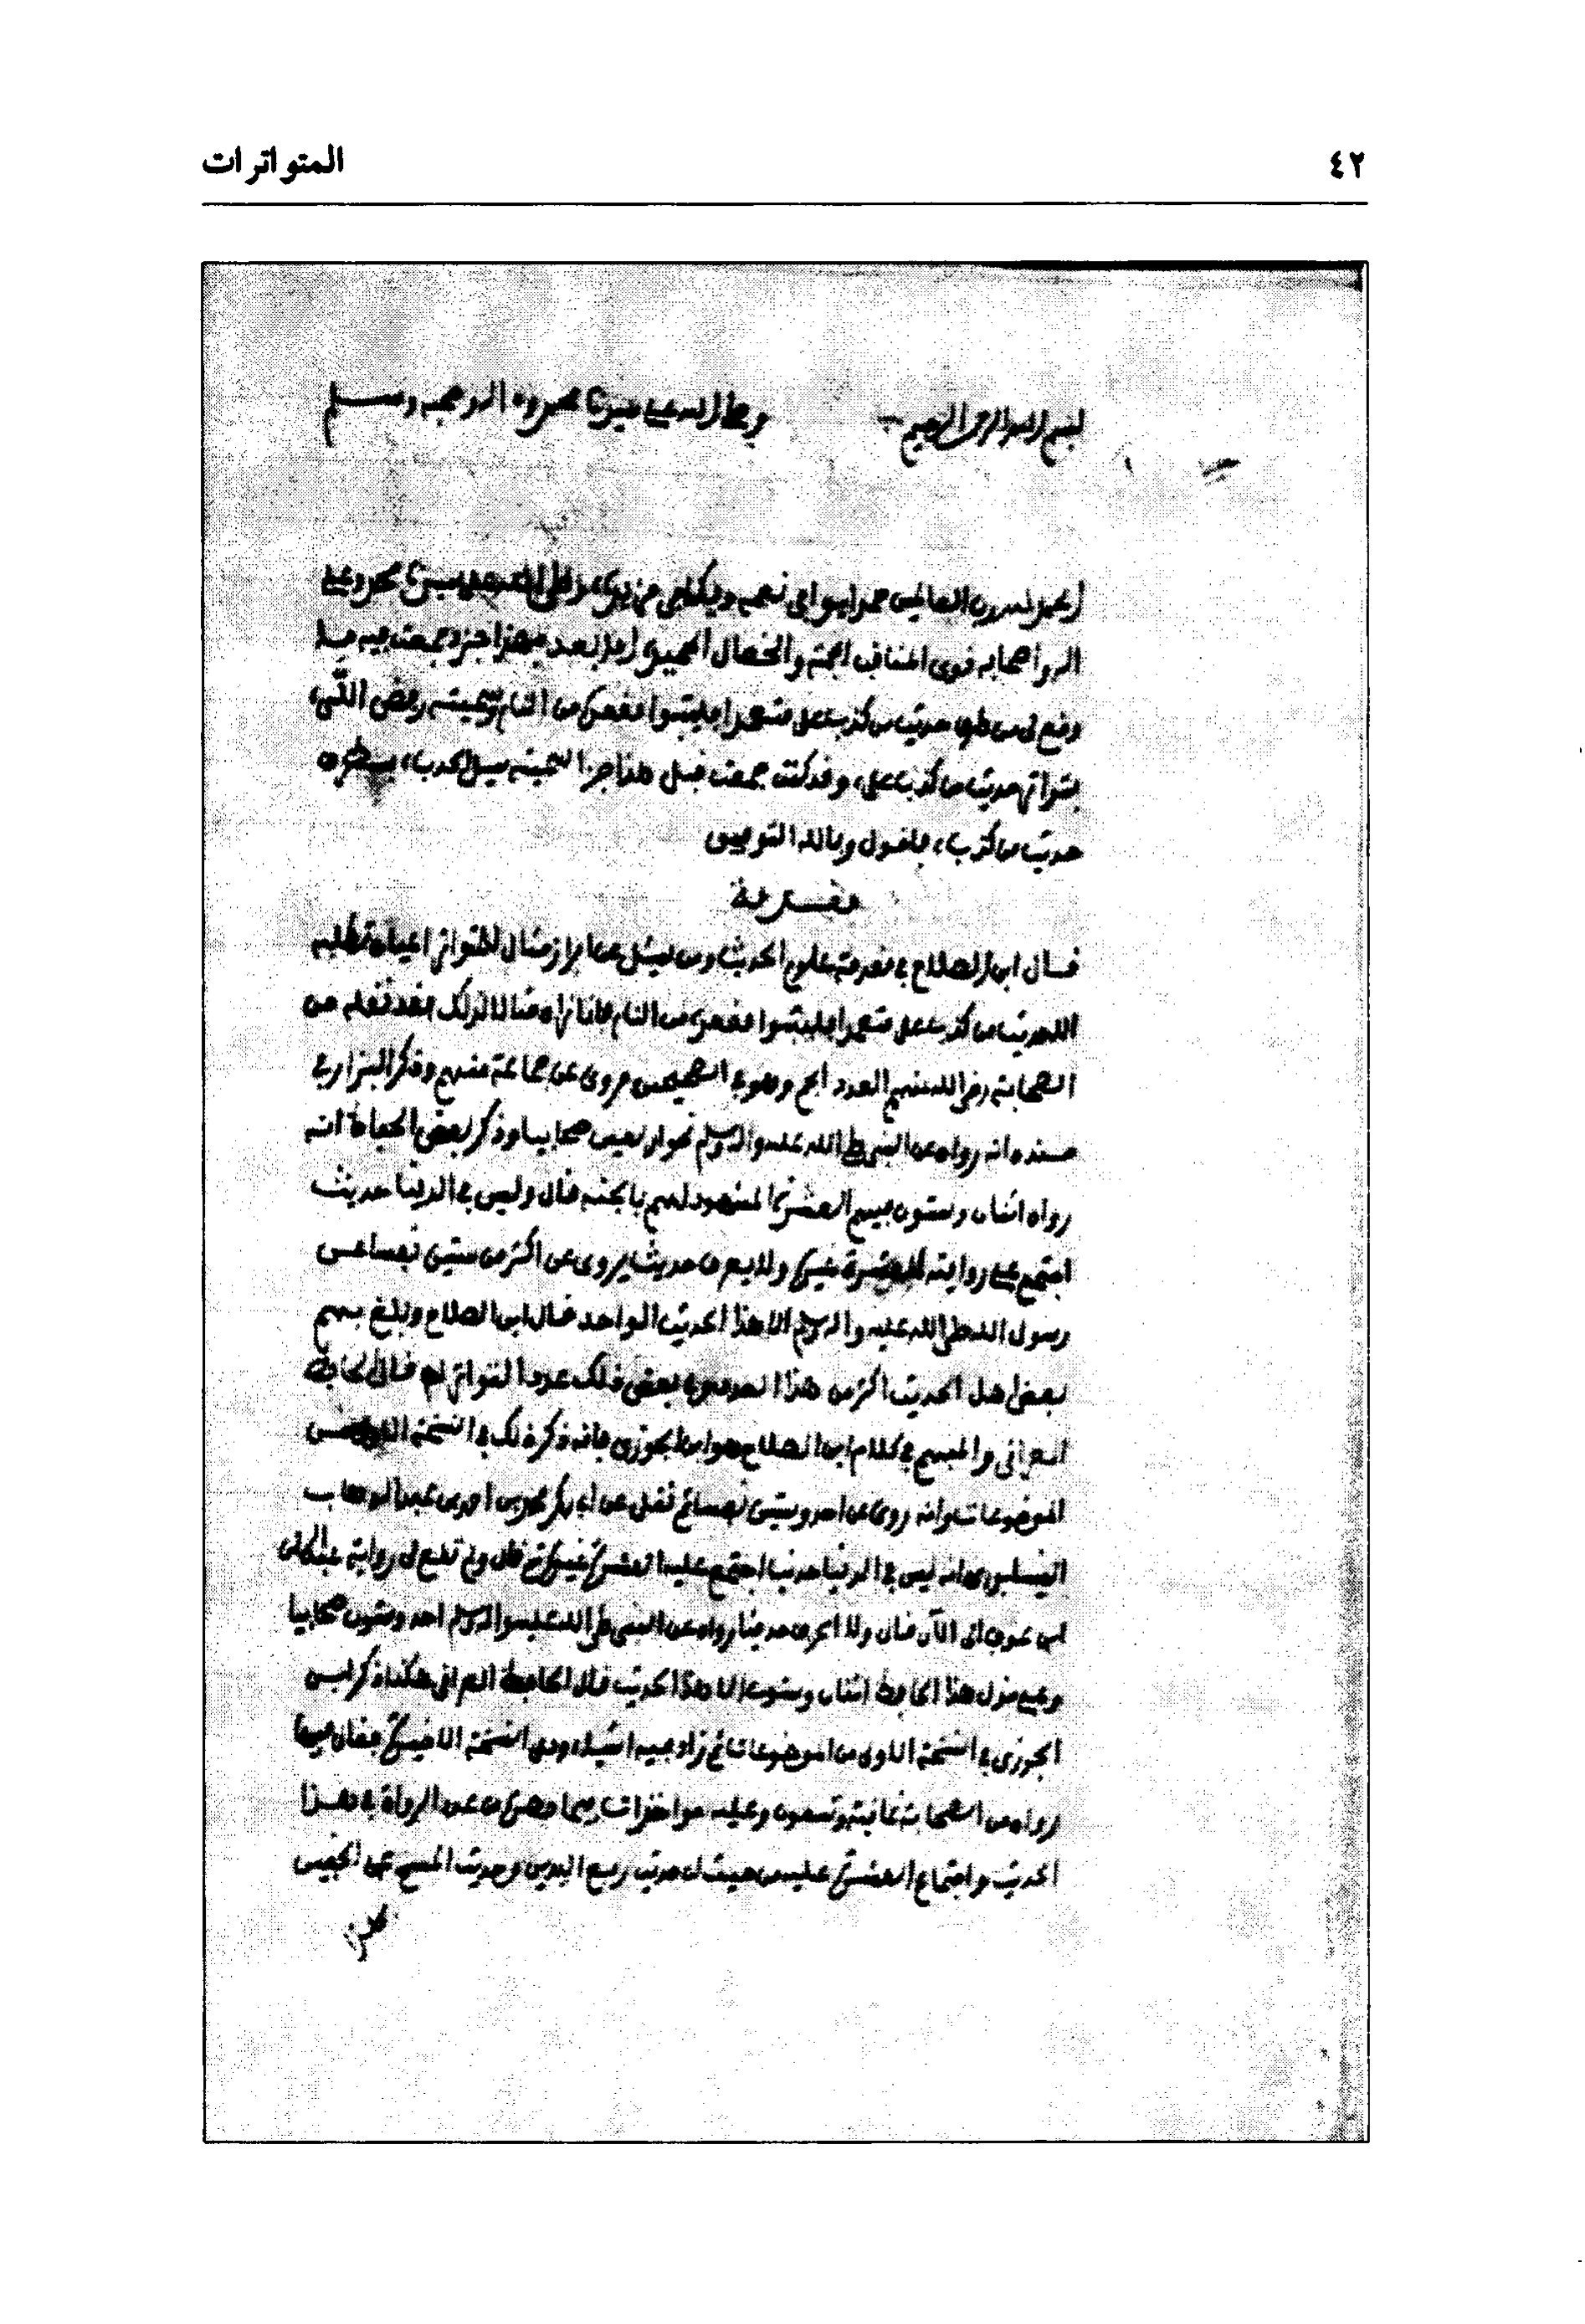 ٤٢
المتواترات
بسم الله الرحمن الرحيم وصلى الله على سيدنا محمد وءاله وصحبه وسلم
الحمد لله رب العالمين حمدا يوافي نعمه ويكافئ مزيده وصلى الله على سيدنا محمد وعلى
اله واصحابه ذوى المناقب الجمة والخصال الحميدة اما بعد فهذا جزء جمعت فيه ما
وقع لى من طرق حديث من كذب على متعمدا فليتبوا مقعده من النار وسميته رفض اللَّي
بتواتر حديث من كذب على وقد كنت جمعت قبل هذا جزا سميته
حديث من كذب فاقول وبالله التوفيق
مقدمة
قال ابن الصلاح في معرفة علوم الحديث ومن سئل عن ابراز مثال للمتواتر اعياه تطلبه
الحديث من كذب على متعمدا فليتبوا مقعده من النار فانا نراه مثالا لذلك فقد نقله من
الصحابة رضى الله عنهم العدد الجم وهو في الصحيحين مروى عن جماعة منهم وذكر البزار في
مسنده انه رواه عن النبي صلى الله عليه واله وسلم نحو اربعين صحابيا وذكر بعض الحفاظ انه
رواه اثنان وستون فيهم العشرة المشهود لهم بالجنة قال وليس في الدنيا حديث
اجتمع على روايته العشرة غيره ولا يعرف حديث يروى عن اكثر من ستين نفسا عن
رسول الله صلى الله عليه واله وسلم الا هذا الحديث الواحد قال ابن الصلاح وبلغ بهم
بعض اهل الحديث اكثر من هذا العدد وفي بعض ذلك عدد التواتر اه قال الحافظ
العراقى والمبهم في كلام ابن الصلاح هو ابن الجوزى فانه ذكر ذلك في النسخة الاولى من
الموضوعات وانه روى عن احد وستين نفسا ثم نقل عن ابى بكر محمد بن احمد بن عبد الوهاب
النيسابورى انه ليس في الدنيا حديث اجتمع عليه العشرة غيره ثم قال ولم تقع لى رواية عبد الرحمن
ابن عوف الى الآن قال ولا اعرف حديثا رواه عن النبى صلى الله عليه واله وسلم احد وستون صحابيا
وعلى قول هذا الحافظ اثنان وستون الا هذا الحديث قال الحافظ العراقى هكذا ذكر ابن
الجوزى في النسخة الاولى من الموضوعات ثم زاد فيه اشياء وهى النسخة الاخيرة فقال فيها
رواه من الصحابة ثمانية وتسعون وعليه مواخذات فيما ذكره من عدد الرواة في هذا
الحديث واجتماع العشرة عليه من حيث ان حديث رفع اليدين وحديث المسح على الخفين